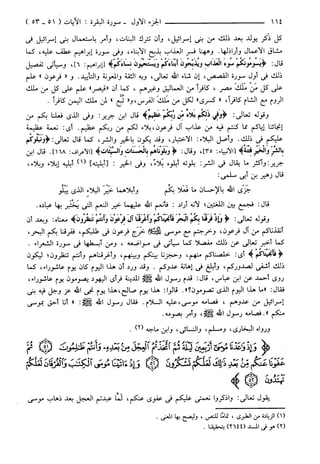 ١١٤ الجزء الأول - سورة البقرة: الآيات (٥١ - ٥٣)
كل ذكر يولد بعد ذلك من بنى إسرائيل، وأن تترك البنات، وأمر باستعمال بنى إسرائيل فى
مشاق الأعمال وأراذلها. وهاهنا فسر العذاب بذبح الأبناء، وفى سورة إبراهيم عطف عليه، كما
قال: ﴿يَسُومُونَكُمْ سُوءَ الْعَذَابِ وَيُذَبِّحُونَ أَبْنَاءَكُمْ وَيَسْتَحْيُونَ نِسَاءَكُمْ﴾ [إبراهيم: ٦]، وسيأتى تفصيل
ذلك فى أول سورة القصص، إن شاء الله تعالى، وبه الثقة والمعونة والتأييد. و«فرعون» علم
على كل من ملك مصر، كافراً من العماليق وغيرهم، كما أن «قيصر» علم على كل من ملك
الروم مع الشام كافراً، و«كسرى» لكل من ملك الفرس، و«تبع» لمن ملك اليمن كافراً.
وقوله تعالى: ﴿وَفِي ذَٰلِكُمْ بَلَاءٌ مِنْ رَبِّكُمْ عَظِيمٌ﴾ قال ابن جرير: وفى الذى فعلنا بكم من
إنجائنا إياكم مما كنتم فيه من عذاب آل فرعون، بلاء لكم من ربكم عظيم. أى: نعمة عظيمة
عليكم فى ذلك. وأصل البلاء: الاختبار، وقد يكون بالخير والشر، كما قال تعالى: ﴿وَنَبْلُوكُمْ
بِالشَّرِّ وَالْخَيْرِ فِتْنَةً﴾ [الأنبياء: ٣٥]، وقال: ﴿وَبَلَوْنَاهُمْ بِالْحَسَنَاتِ وَالسَّيِّئَاتِ﴾ [الأعراف: ١٦٨]. قال ابن
جرير: وأكثر ما يقال فى الشر: بلوته أبلوه بلاءً، وفى الخير: [أبليته] (١) أبليه إبلاء وبلاء،
قال زهير بن أبى سلمى:
جزى الله بالإحسان ما فعلا بكم وأبلاهما خير البلاء الذى يبلو
قال: فجمع بين اللغتين؛ لأنه أراد: فأنعم الله عليهما خير النعم التى يختبر بها عباده.
وقوله تعالى: ﴿وَإِذْ فَرَقْنَا بِكُمُ الْبَحْرَ فَأَنْجَيْنَاكُمْ وَأَغْرَقْنَا آلَ فِرْعَوْنَ وَأَنْتُمْ تَنْظُرُونَ﴾ معناه: وبعد أن
أنقذناكم من آل فرعون، وخرجتم مع موسى ﷺ خرج فرعون فى طلبكم، ففرقنا بكم البحر،
كما أخبر تعالى عن ذلك مفصلا كما سيأتى فى مواضعه، ومن أبسطها فى سورة الشعراء.
﴿فَأَنْجَيْنَاكُمْ﴾ أى: خلصناكم منهم، وحجزنا بينكم وبينهم، وأغرقناهم وأنتم تنظرون؛ ليكون
ذلك أشفى لصدوركم، وأبلغ فى إهانة عدوكم. وقد ورد أن هذا اليوم كان يوم عاشوراء، كما
روى أحمد عن ابن عباس، قال: قدم رسول الله ﷺ المدينة فرأى اليهود يصومون يوم عاشوراء،
فقال: «ما هذا اليوم الذى تصومون؟». قالوا: هذا يوم صالح، هذا يوم نجى الله عز وجل فيه بنى
إسرائيل من عدوهم، فصامه موسى، عليه السلام. فقال رسول الله ﷺ: «أنا أحق بموسى
منكم». فصامه رسول الله ﷺ، وأمر بصومه.
ورواه البخارى، ومسلم، والنسائى، وابن ماجه (٢).
﴿وَإِذْ وَاعَدْنَا مُوسَىٰ أَرْبَعِينَ لَيْلَةً ثُمَّ اتَّخَذْتُمُ الْعِجْلَ مِنْ بَعْدِهِ وَأَنْتُمْ ظَالِمُونَ ﴿٥١﴾ ثُمَّ
عَفَوْنَا عَنْكُمْ مِنْ بَعْدِ ذَٰلِكَ لَعَلَّكُمْ تَشْكُرُونَ ﴿٥٢﴾ وَإِذْ آتَيْنَا مُوسَى الْكِتَابَ وَالْفُرْقَانَ لَعَلَّكُمْ
تَهْتَدُونَ ﴿٥٣﴾﴾
يقول تعالى: واذكروا نعمتى عليكم فى عفوى عنكم، لما عبدتم العجل بعد ذهاب موسى
(١) الزيادة من الطبرى، تماماً للنص، وليصح بها المعنى.
(٢) هو فى المسند (٢٦٤٤) بتحقيقنا.